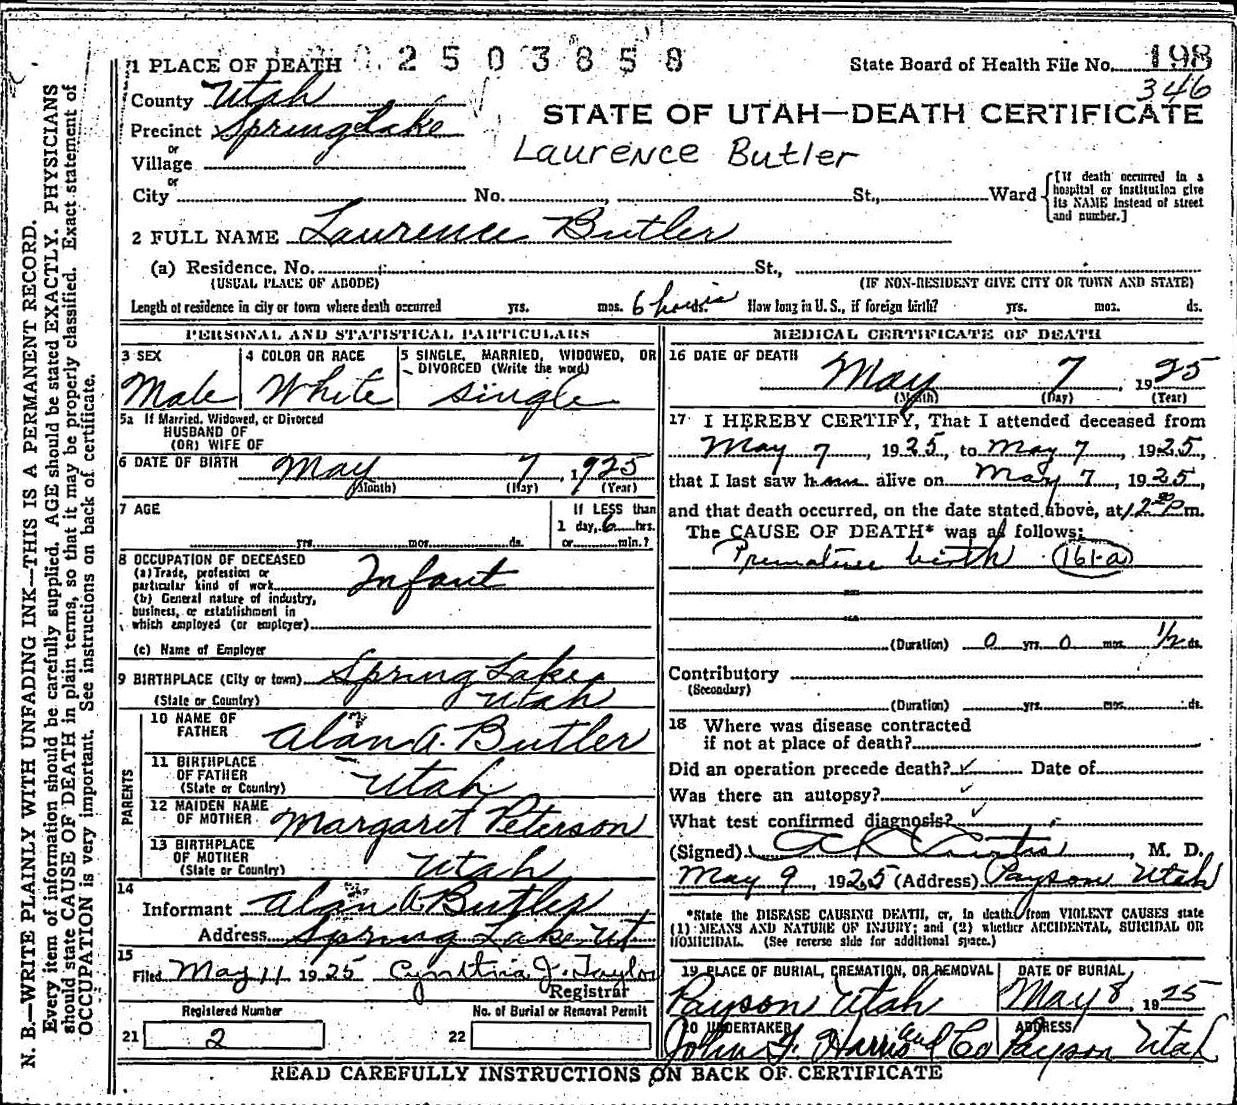 1 PLACE OF DEATH 2503858
State Board of Health File No. 198
346
County Utah
STATE OF UTAH—DEATH CERTIFICATE
Precinct Spring Lake
or
Village
Laurence Butler
or
City No. St., Ward
[If death occurred in a
hospital or institution give
its NAME instead of street
and number.]
2 FULL NAME Laurence Butler
(a) Residence. No. St.,
(USUAL PLACE OF ABODE) (IF NON-RESIDENT GIVE CITY OR TOWN AND STATE)
Length of residence in city or town where death occurred yrs. mos. 6 hours ds. How long in U. S., if foreign birth? yrs. mos. ds.
PERSONAL AND STATISTICAL PARTICULARS
3 SEX
Male
4 COLOR OR RACE
White
5 SINGLE, MARRIED, WIDOWED, OR
DIVORCED (Write the word)
Single
5a If Married, Widowed, or Divorced
HUSBAND OF
(OR) WIFE OF
6 DATE OF BIRTH May 7, 1925
(Month) (Day) (Year)
7 AGE
yrs. mos. ds.
If LESS than
1 day, 6 hrs.
or min.?
8 OCCUPATION OF DECEASED
(a) Trade, profession or
particular kind of work Infant
(b) General nature of industry,
business, or establishment in
which employed (or employer)
(c) Name of Employer
9 BIRTHPLACE (City or town) Spring Lake,
(State or Country) Utah
PARENTS
10 NAME OF
FATHER Alan A. Butler
11 BIRTHPLACE
OF FATHER
(State or Country) Utah
12 MAIDEN NAME
OF MOTHER Margaret Peterson
13 BIRTHPLACE
OF MOTHER
(State or Country) Utah
14
Informant Alan A. Butler
Address Spring Lake Ut
15
Filed May 11 1925 Cynthia J. Taylor
Registrar
Registered Number
21 2
No. of Burial or Removal Permit
22
MEDICAL CERTIFICATE OF DEATH
16 DATE OF DEATH
May 7, 1925
(Month) (Day) (Year)
17 I HEREBY CERTIFY, That I attended deceased from
May 7, 1925, to May 7, 1925,
that I last saw him alive on May 7, 1925,
and that death occurred, on the date stated above, at m.
The CAUSE OF DEATH* was as follows:
Premature birth 161-a
(Duration) 0 yrs. 0 mos. 1/2 ds.
Contributory
(Secondary)
(Duration) yrs. mos. ds.
18 Where was disease contracted
if not at place of death?
Did an operation precede death? ✓ Date of
Was there an autopsy? ✓
What test confirmed diagnosis? ✓
(Signed) Curtis, M. D.
May 9, 1925 (Address) Payson Utah
*State the DISEASE CAUSING DEATH, or, in death from VIOLENT CAUSES state
(1) MEANS AND NATURE OF INJURY; and (2) whether ACCIDENTAL, SUICIDAL OR
HOMICIDAL. (See reverse side for additional space.)
19 PLACE OF BURIAL, CREMATION, OR REMOVAL
Payson Utah
DATE OF BURIAL
May 8, 1925
20 UNDERTAKER
John F. Harris and Co
ADDRESS
Payson Utah
READ CAREFULLY INSTRUCTIONS ON BACK OF CERTIFICATE
N. B.—WRITE PLAINLY WITH UNFADING INK—THIS IS A PERMANENT RECORD.
Every item of information should be carefully supplied. AGE should be stated EXACTLY. PHYSICIANS
should state CAUSE OF DEATH in plain terms, so that it may be properly classified. Exact statement of
OCCUPATION is very important. See instructions on back of certificate.